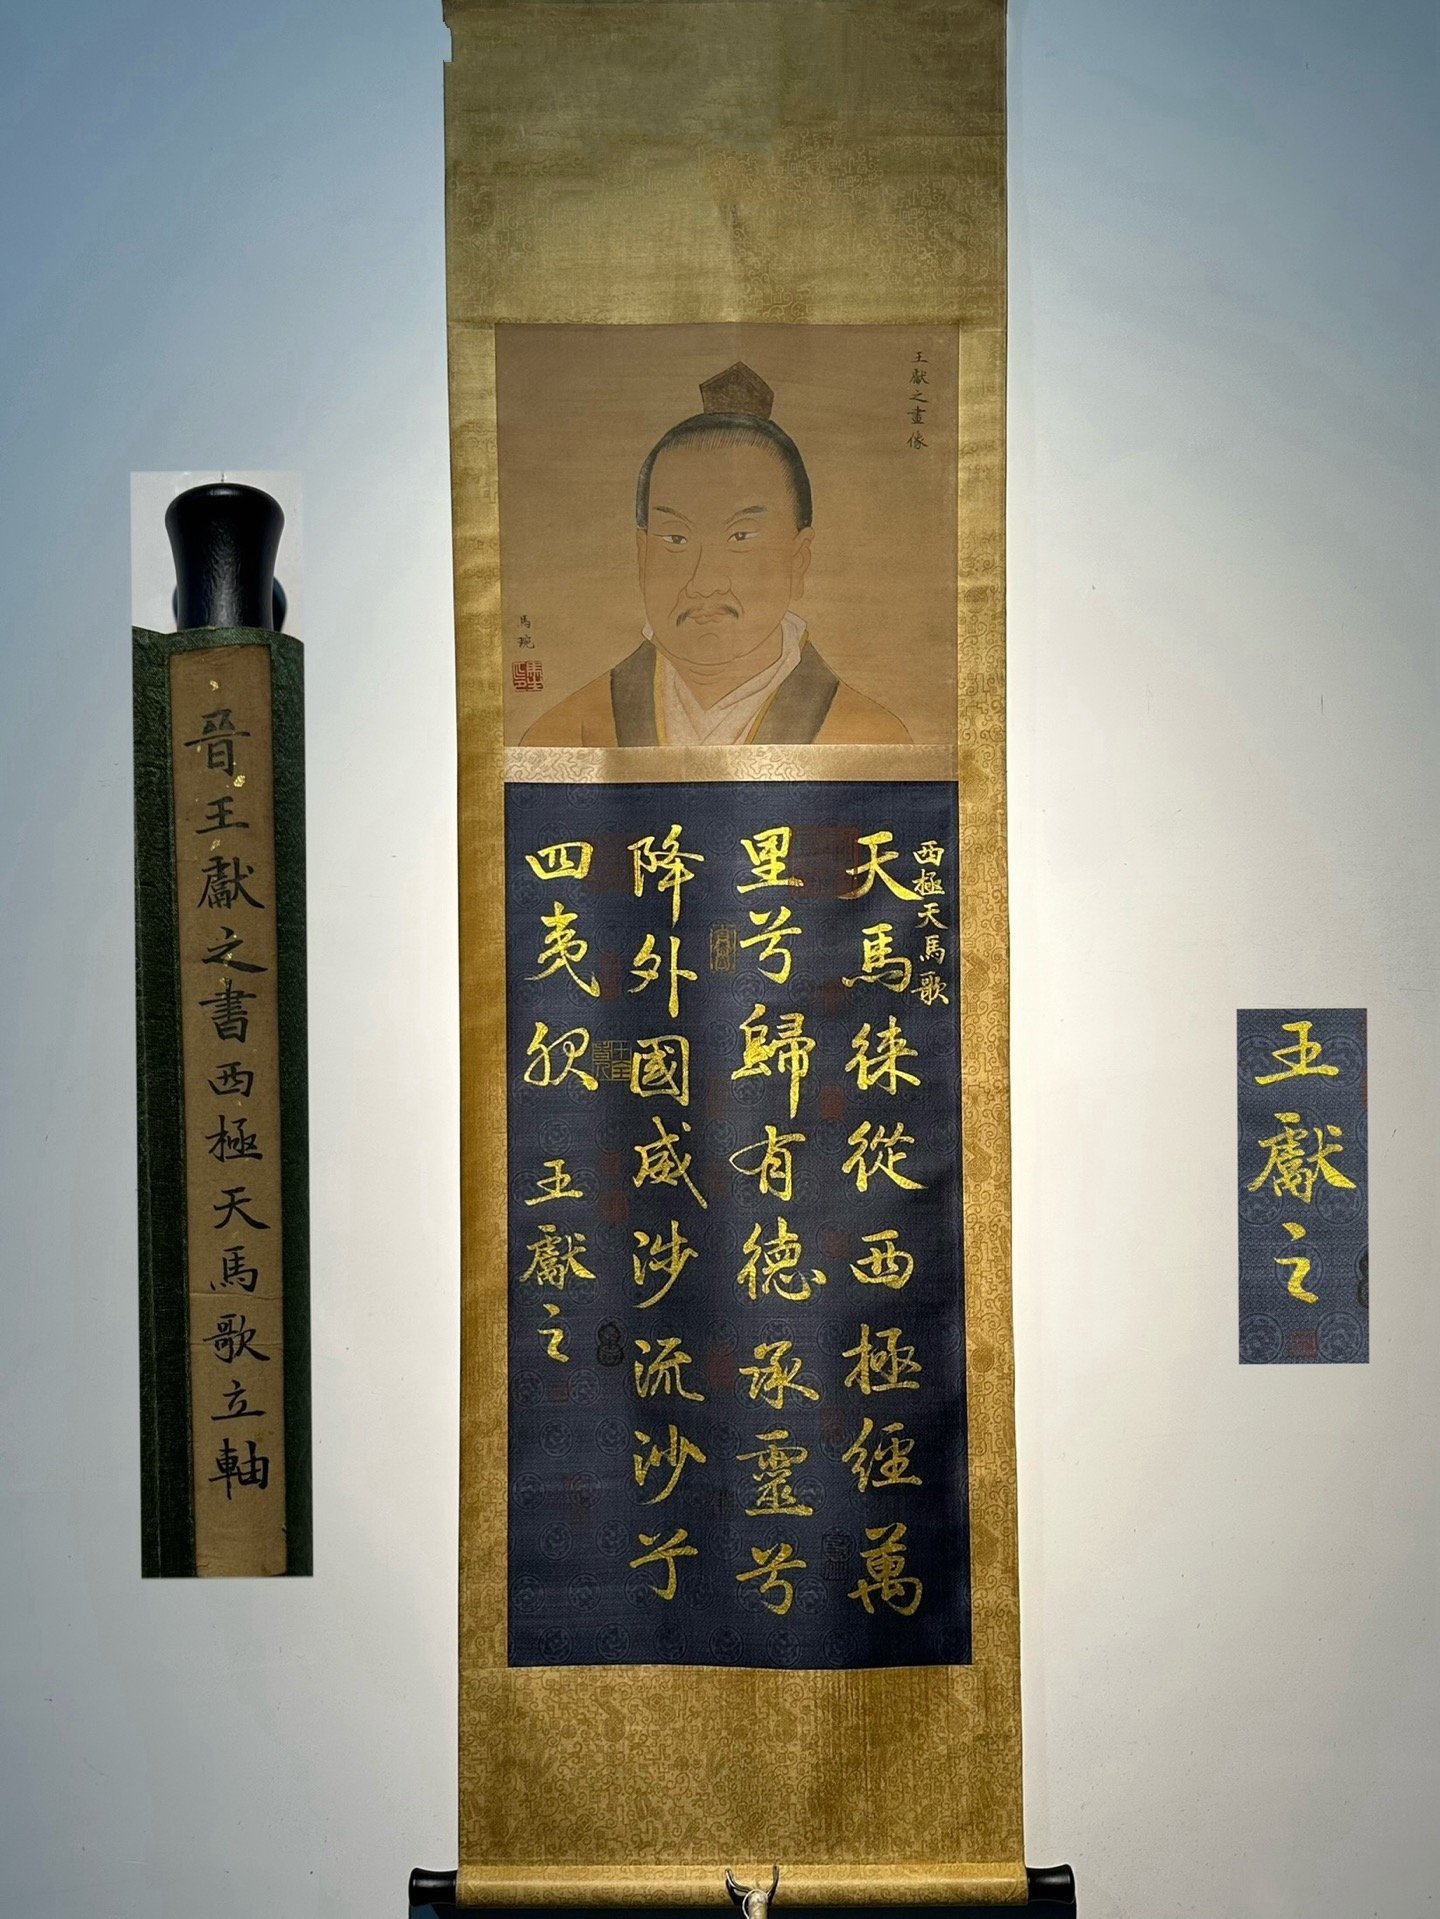 晉王獻之書西極天馬歌立軸
王獻之畫像
馬琬
西極天馬歌
天馬徠從西極經萬
里兮歸有德承靈兮
降外國威涉流沙兮
四夷服
王獻之
王獻之